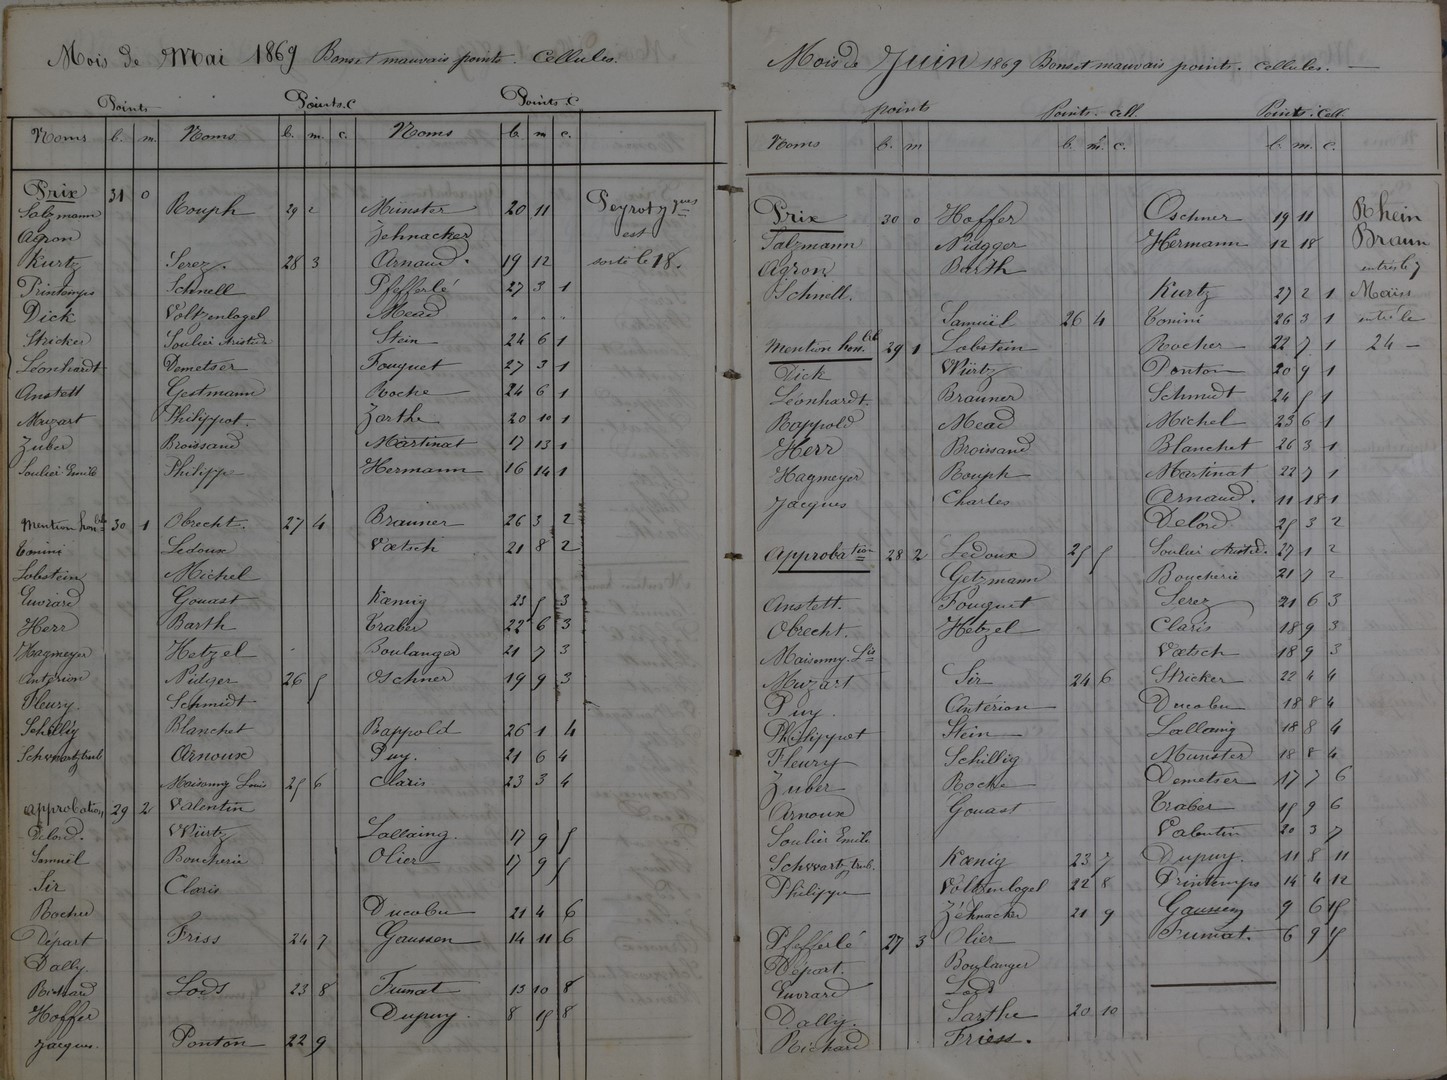 Mois de Mai 1869 Bons et mauvais points. Cellules.
Points Points. C Points. C
Noms b. m. Noms b. m. c. Noms b. m c.
Prix 31 0
Salzmann Rouph 29 2 Münster 20 11 Peyrot
Agron Zehnacker est
Kurtz Serez. 28 3 Arnaud. 19 12 sorti le 18.
Printemps Schnell Pfefferlé 27 3 1
Dick Voltzenlogel Mead " " "
Stricker Soulier Aristide Stein 24 6 1
Léonhardt Demetser Fouquet 27 3 1
Anstett Gestmann Roche 24 6 1
Muzart Philippot. Zarthe 20 10 1
Zuber Broissand Martinat 17 13 1
Soulier Emile Philippe Hermann 16 14 1
Mention hon.ble 30 1 Obrecht. 27 4 Brauner 26 3 2
Tonini Ledoux Vœtsch 21 8 2
Lobstein Michel
Euvrard Gouast Kœnig 23 5 3
Herr Barth Traber 22 6 3
Hagmeyer Hetzel Boulanger 21 7 3
Antérion Nidger 26 5 Oschner 19 9 3
Fleury. Schmidt
Schillig Blanchet Rappold 26 1 4
Schwartztrub Arnoux Puy. 21 6 4
Maisonny Louis 25 6 Claris 23 3 4
Approbation 29 2 Valentin
Delord. Würtz Lallaing. 17 9 5
Samuel Boucherie Olier 17 9 5
Sir Claris
Rocher Ducolu 21 4 6
Départ Friss 24 7 Gaussen 14 11 6
Dally.
Richard Lods 23 8 Fumat 13 10 8
Hoffer Dupuy. 8 15 8
Jacques Ponton 22 9
Mois de Juin 1869 Bons et mauvais points. Cellules.
points Points. Cell. Points. Cell.
Noms b. m b. m. c. b. m. c.
Prix 30 0 Hoffer Oschner 19 11 Rhein
Salzmann Nidgger Hermann 12 18 Braun
Agron Barth entrés le 7
Schnell. Kurtz 27 2 1 Maïss
Samuël 26 4 Tonini 26 3 1 entré le
Mention hon.ble 29 1 Lobstein Rocher 22 7 1 24
Dick Würtz Ponton 20 9 1
Léonhardt. Brauner Schmidt 24 5 1
Rappold Mead Michel 23 6 1
Herr Broissand Blanchet 26 3 1
Hagmeyer Rouph Martinat 22 7 1
Jacques Charles Arnaud. 11 18 1
Delord 25 3 2
Approbation 28 2 Ledoux 25 5 Soulier Aristid. 27 1 2
Getzmann Boucherie 21 7 2
Anstett. Fouquet Serez 21 6 3
Obrecht. Hetzel Claris 18 9 3
Maisonny Lis Vœtsch 18 9 3
Muzart Sir 24 6 Stricker 22 4 4
Puy. Antérion Ducolu 18 8 4
Philippot Stein Lallaing 18 8 4
Fleury Schillig Munster 18 8 4
Zuber Roche Demetser 17 7 6
Arnoux Gouast Traber 15 9 6
Soulier Emile Valentin 20 3 7
Schwartztrub. Kœnig 23 7 Dupuy. 11 8 11
Philippe Voltzenlogel 22 8 Printemps 14 4 12
Zéhnacker 21 9 Gaussen 9 6 15
Pfefferlé 27 3 Olier Fumat. 6 9 15
Départ. Boulanger
Euvrard Lods
Dally. Sarthe 20 10
Richard Friess.